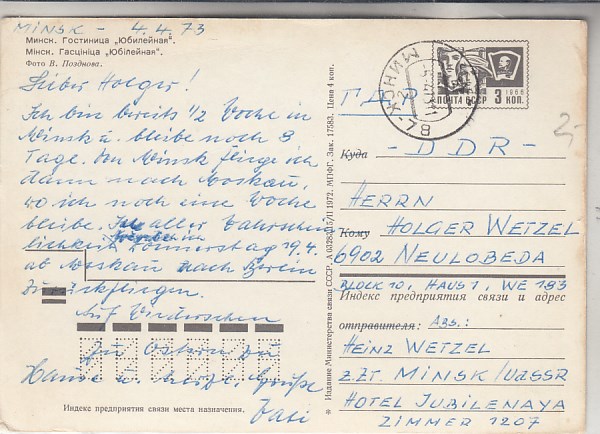 MINSK - 4.4.73
Минск. Гостиница „Юбилейная".
Мінск. Гасцініца „Юбілейная".
Фото В. Позднова.
Lieber Holger!
Ich bin bereits 1/2 Woche in
Minsk u. bleibe noch 8
Tage. Von Minsk fliege ich
dann nach Moskau,
wo ich noch eine Woche
bleibe. aller Wahrschein
lichkeit Donnerstag 19.4.
ab Moskau nach Berlin
zurückfliegen.
Auf Wiedersehen
zu Ostern zu
Hause u. herzl. Grüße
Vati
Индекс предприятия связи места назначения.
Издание Министерства связи СССР. 1972. МПФГ. Зак. 17583. Цена 4 коп.
МИНСК-87
ПОЧТА СССР
1966
3 КОП.
2,-
ГДР
Куда - DDR -
HERRN
Кому HOLGER WETZEL
6902 NEULOBEDA
BLOCK 10, HAUS 1, WE 193
Индекс предприятия связи и адрес
отправителя: ABS.:
HEINZ WETZEL
Z.ZT. MINSK/UdSSR
HOTEL JUBILENAYA
ZIMMER 1207